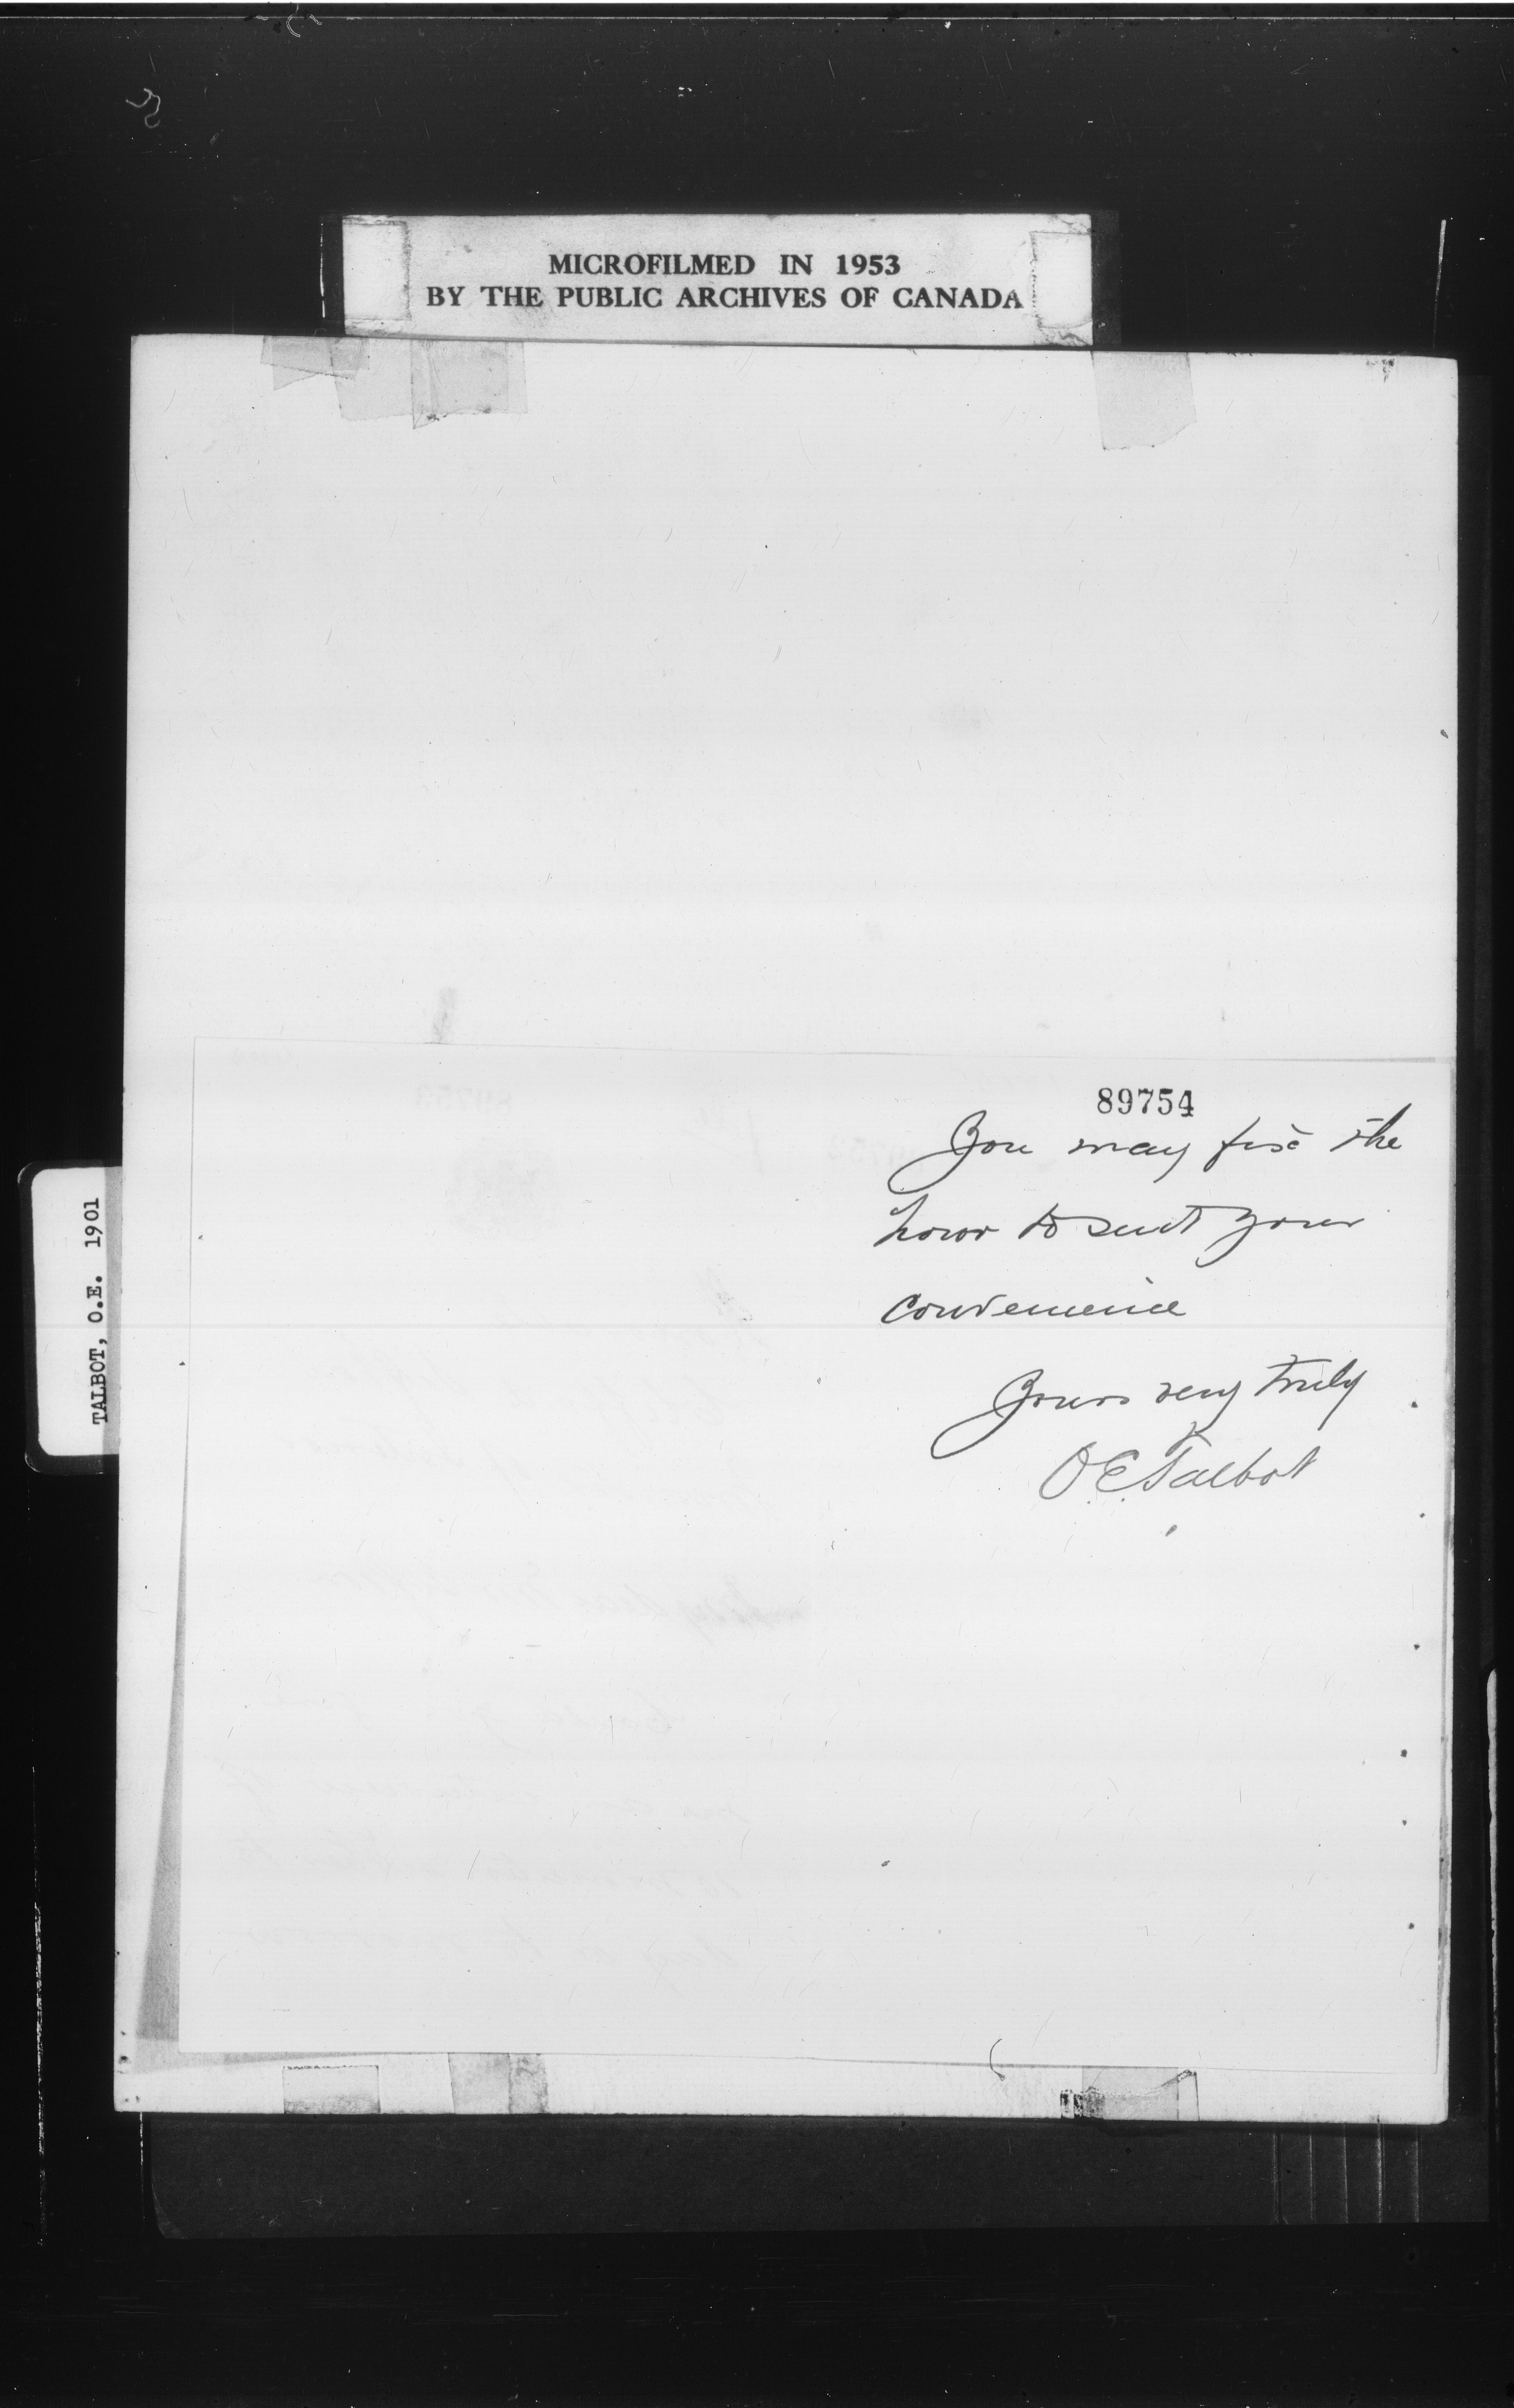 MICROFILMED IN 1953
BY THE PUBLIC ARCHIVES OF CANADA
TALBOT, O.E. 1901
89754
You may fix the
hour to suit your
convenience
Yours very truly
O.E. Talbot